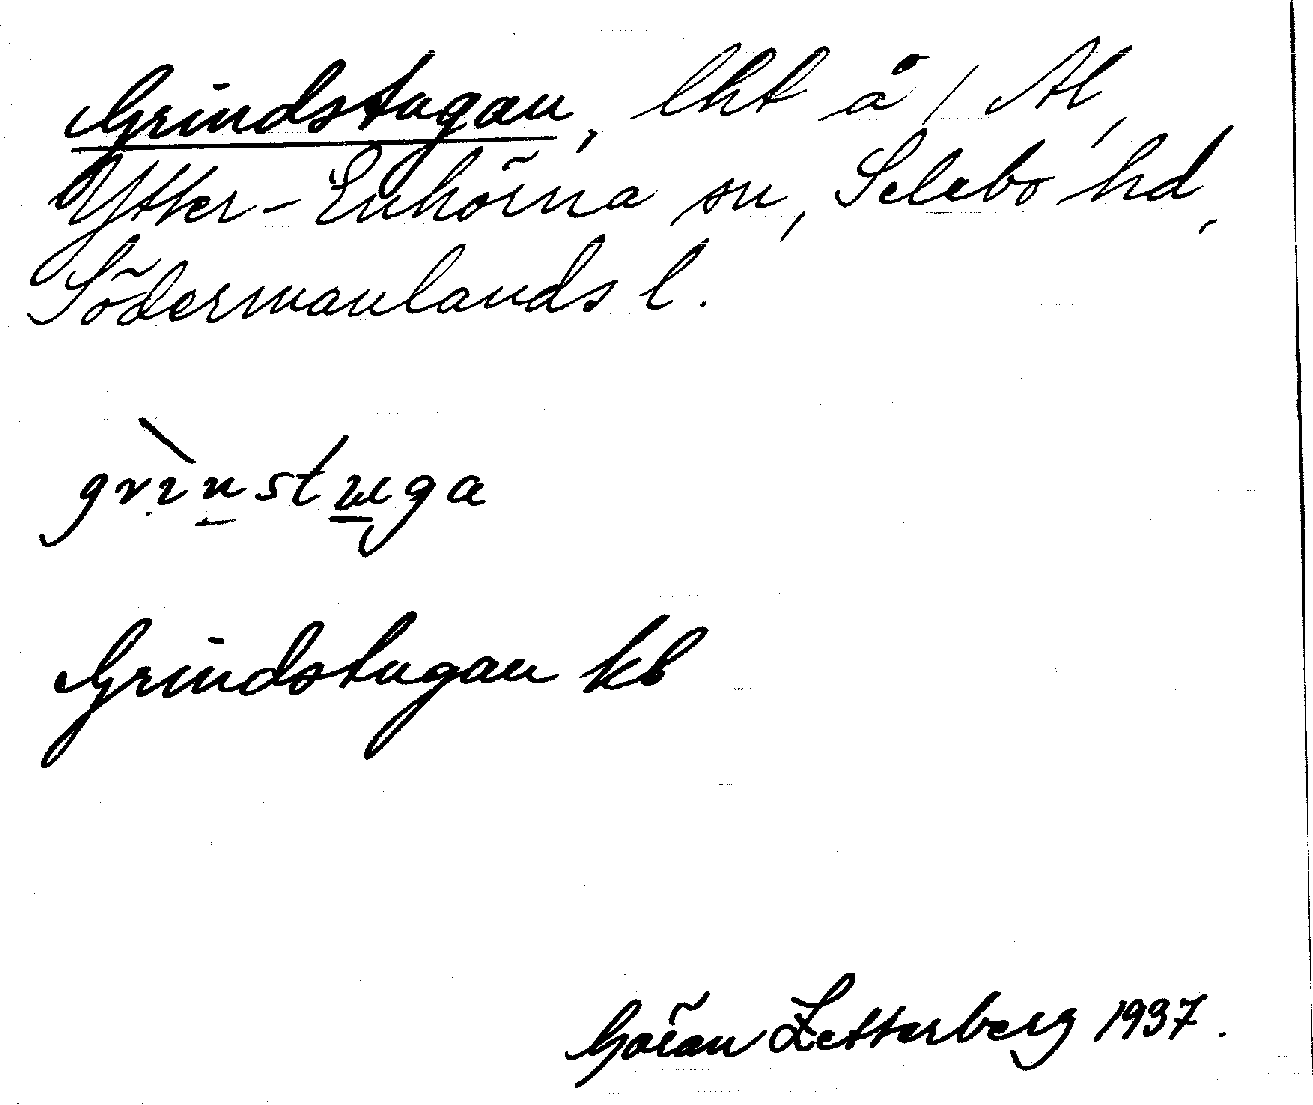 Grindstugan, lht å 1 Al,
Ytter-Enhörna sn, Selebo hd,
Södermanlands l.
grìnstuga
Grindstugan kb
Göran Zetterberg 1937.